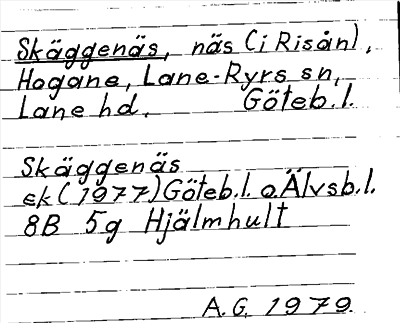 Skäggenäs, näs (i Risån),
Hogane, Lane-Ryrs sn,
Lane hd. Göteb.l.
Skäggenäs
ek (1977) Göteb.l. o. Älvsb.l.
8B 5g Hjälmhult
A.G. 1979.